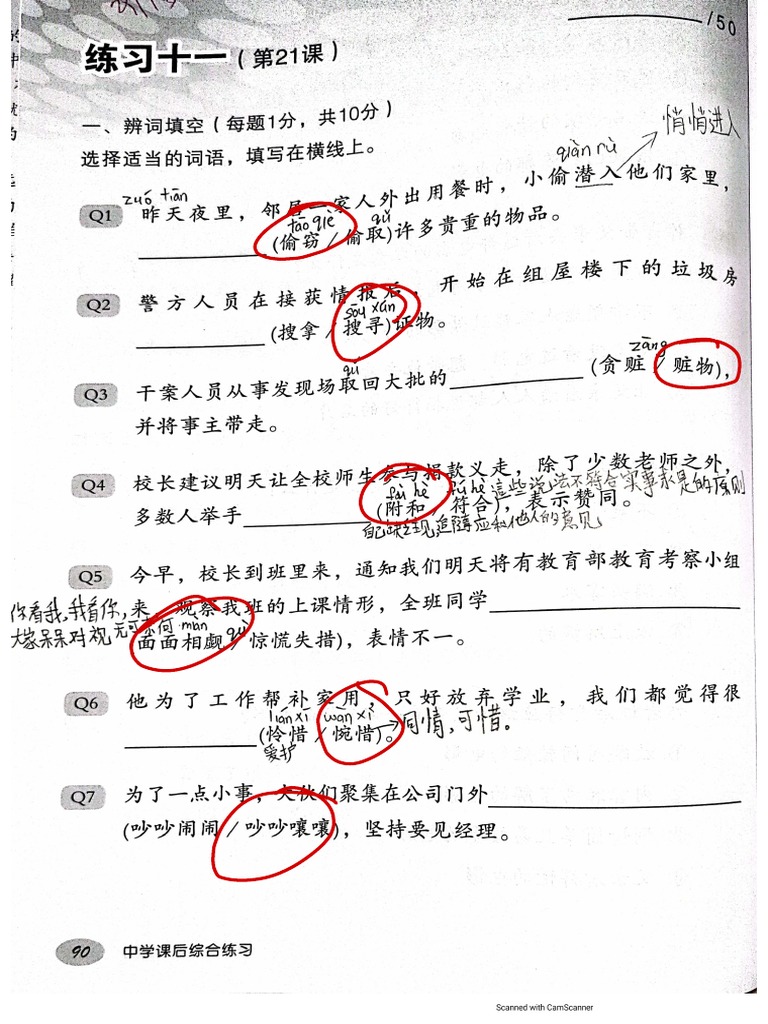 /50
练习十一(第21课)
一、辨词填空(每题1分,共10分)
悄悄进入
选择适当的词语,填写在横线上。
qiàn rù
zuó tiān
Q1 昨天夜里,邻居一家人外出用餐时,小偷潜入他们家里,
tāo qiè qǔ
____(偷窃/偷取)许多贵重的物品。
Q2 警方人员在接获情报后,开始在组屋楼下的垃圾房
sōu xún
____(搜拿/搜寻)证物。
qǔ zāng
Q3 干案人员从事发现场取回大批的____(贪赃/赃物),
并将事主带走。
Q4 校长建议明天让全校师生参与捐款义走,除了少数老师之外,
fù hè fú hé 這些说法不符合实事求是的原则
多数人举手____(附和/符合),表示赞同。
追随应和他人的意见
Q5 今早,校长到班里来,通知我们明天将有教育部教育考察小组
你看我,我看你,
来,观察我班的上课情形,全班同学____
大家呆呆对视 无可奈何 miàn qù
面面相觑/惊慌失措),表情不一。
Q6 他为了工作帮补家用,只好放弃学业,我们都觉得很
lián xī wǎn xī
____(怜惜/惋惜)。同情,可惜。
爱护
Q7 为了一点小事,大伙们聚集在公司门外____
(吵吵闹闹/吵吵嚷嚷),坚持要见经理。
90 中学课后综合练习
Scanned with CamScanner